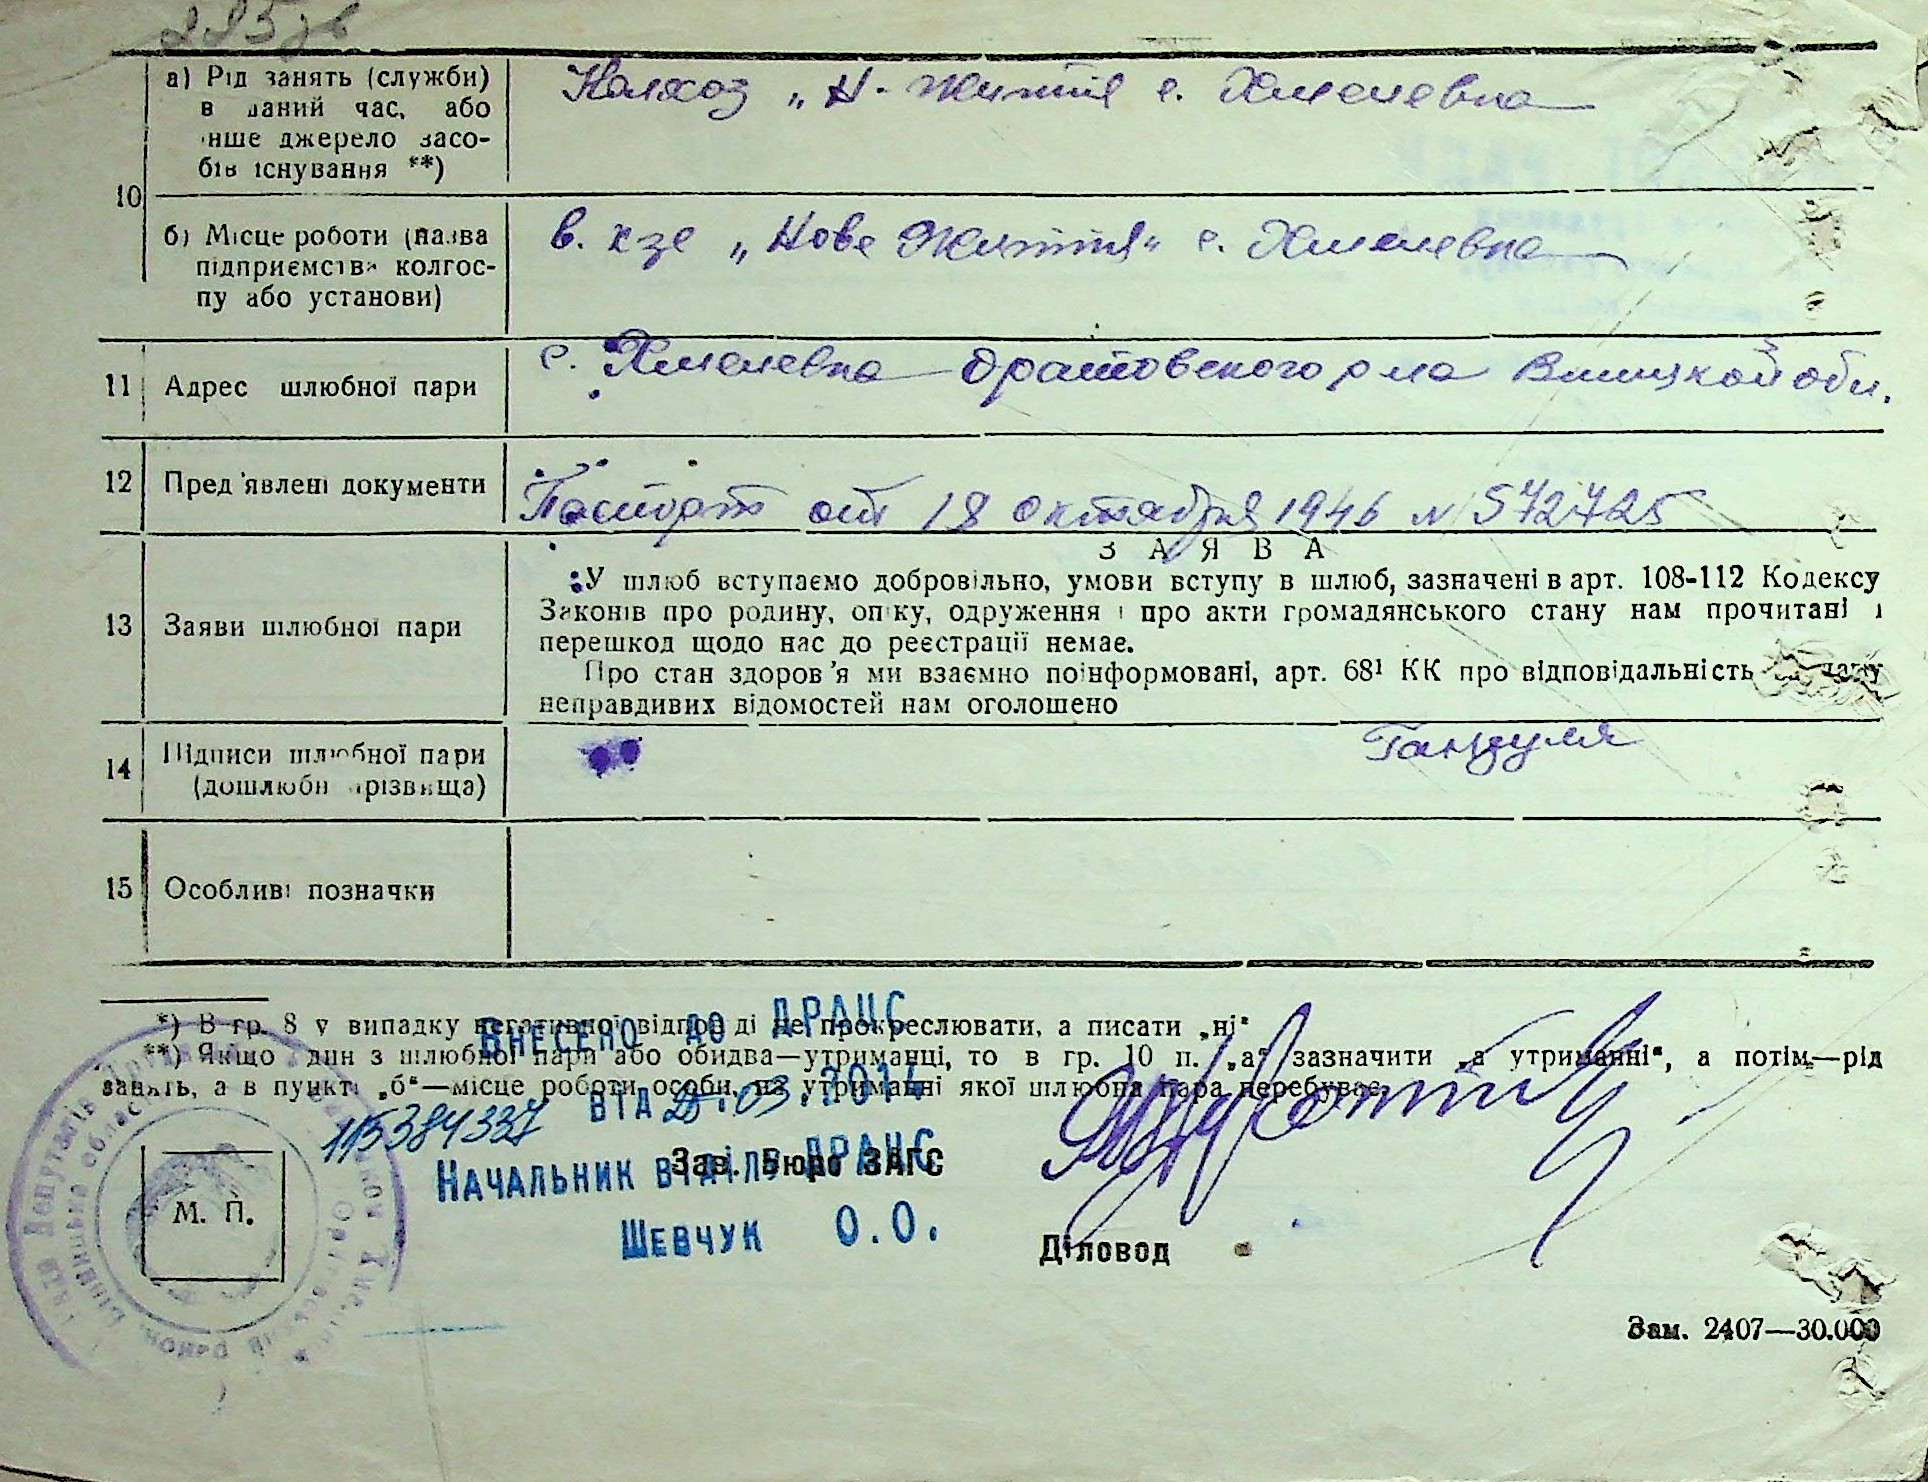 285
а) Рід занять (служби)
в даний час, або
інше джерело засо-
бів існування **)
Колхоз „Н. Життія с. Хмелевка
10
б) Місце роботи (назва
підприємства колгос-
пу або установи)
в. к-зе „Нове Життія" с. Хмелевка
11 Адрес шлюбної пари
с. Хмелевка Оратовского р-на Вницкой обл.
12 Пред'явлені документи
Паспорт от 18 октября 1946 N 572725
З А Я В А
13 Заяви шлюбної пари
У шлюб вступаємо добровільно, умови вступу в шлюб, зазначені в арт. 108-112 Кодексу
Законів про родину, опіку, одруження і про акти громадянського стану нам прочитані і
перешкод щодо нас до реєстрації немає.
Про стан здоров'я ми взаємно поінформовані, арт. 68¹ КК про відповідальність за дачу
неправдивих відомостей нам оголошено
14 Підписи шлюбної пари
(дошлюбні прізвища)
Гандуля
15 Особливі позначки
*) В гр. 8 у випадку негативної відповіді не прокреслювати, а писати „ні"
**) Якщо один з шлюбної пари або обидва—утриманці, то в гр. 10 п. „а" зазначити „на утриманні", а потім—рід
занять, а в пункті „б"—місце роботи особи, на утриманні якої шлюбна пара перебуває.
Внесено до ДРАЦС
від 25.03.2014
115384337
Начальник відділу ДРАЦС
Шевчук О.О.
Зав. Бюро ЗАГС
М. П.
Діловод
Зам. 2407—30.000